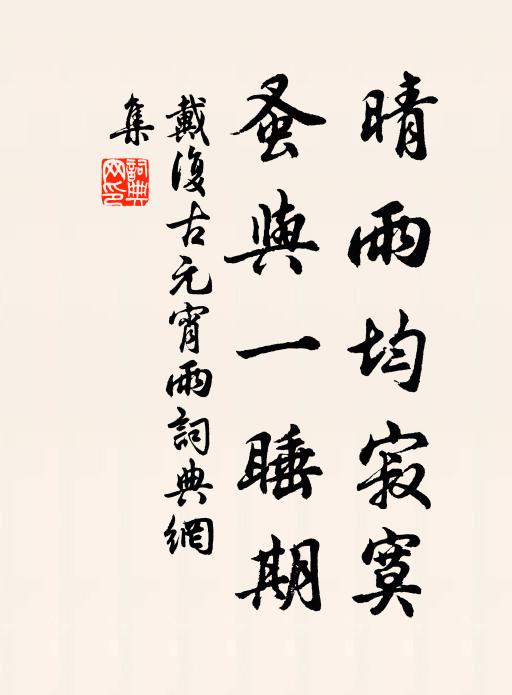 晴雨均寂寞
蚤與一睡期
戴復古元宵雨詞典網
集
詞典網印